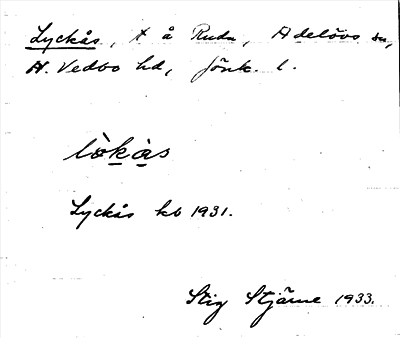 Lyckås, t å Ruda, Adelövs sn,
N. Vedbo hd, Jönk. l.
lòkàs
Lyckås kb 1931.
Stig Stjärne 1933.